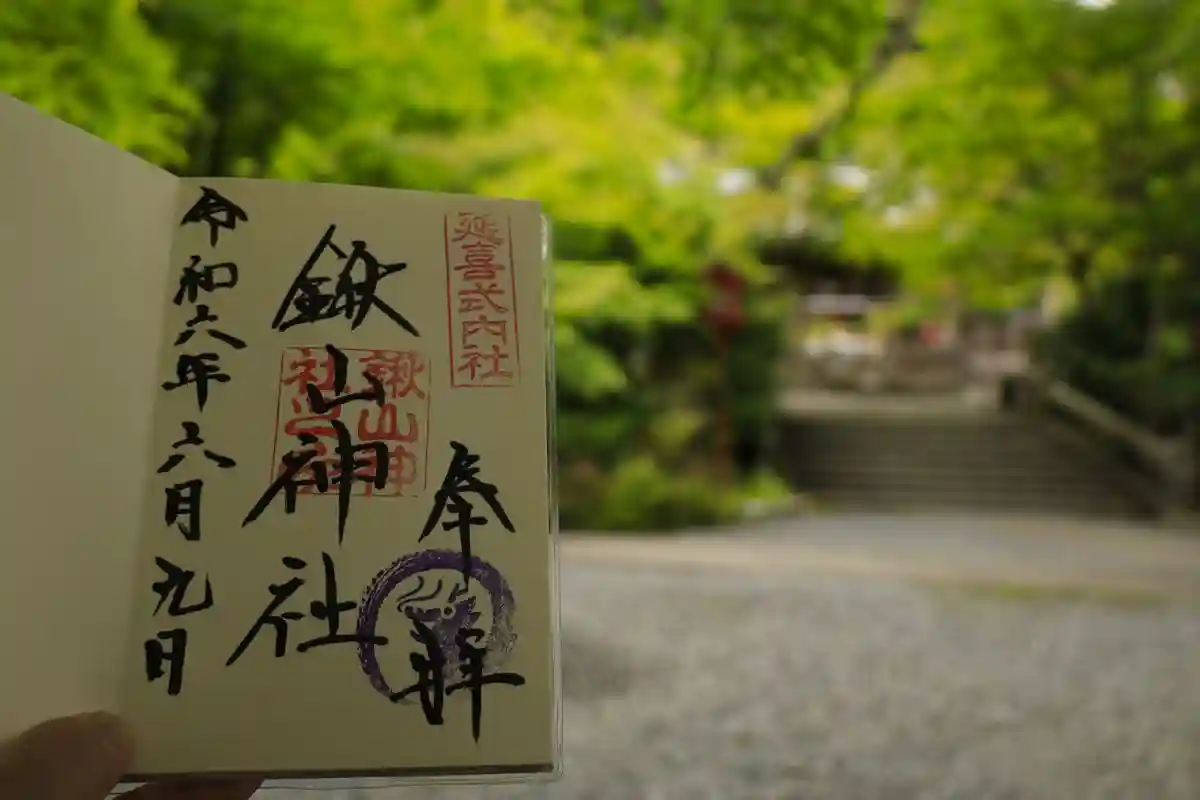 延喜式内社
奉拝
鍬山神社
鍬山神
社之
令和六年六月九日